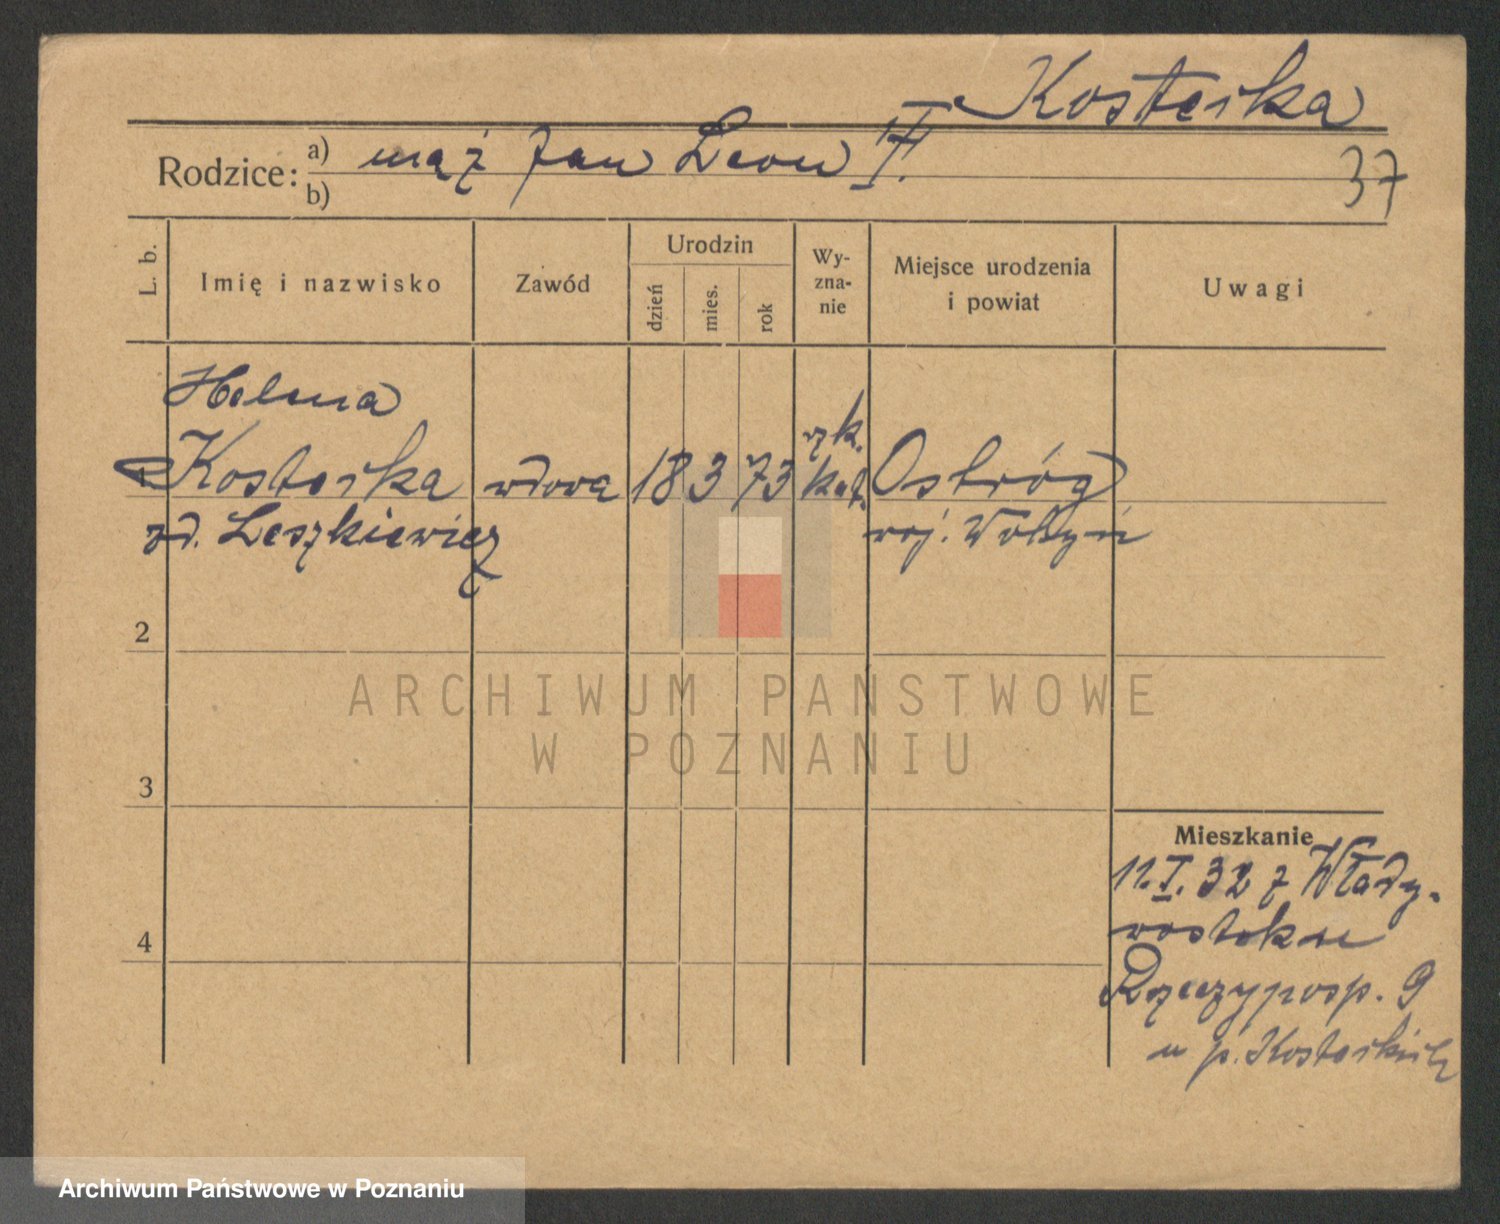 Kosterka
37
Rodzice: a) mąż Jan Leon
b)
L. b.
Imię i nazwisko
Zawód
Urodzin
dzień
mies.
rok
Wy-
zna-
nie
Miejsce urodzenia
i powiat
Uwagi
Helena
Kosterka wdowa 18 3 73 rzk. kat. Ostróg
zd. Leszkiewicz woj. Wołyń
2
3
4
ARCHIWUM PAŃSTWOWE
W POZNANIU
Mieszkanie
11.I.32 z Włady-
wostoku
Rzeczyposp. 9
u p.
Archiwum Państwowe w Poznaniu